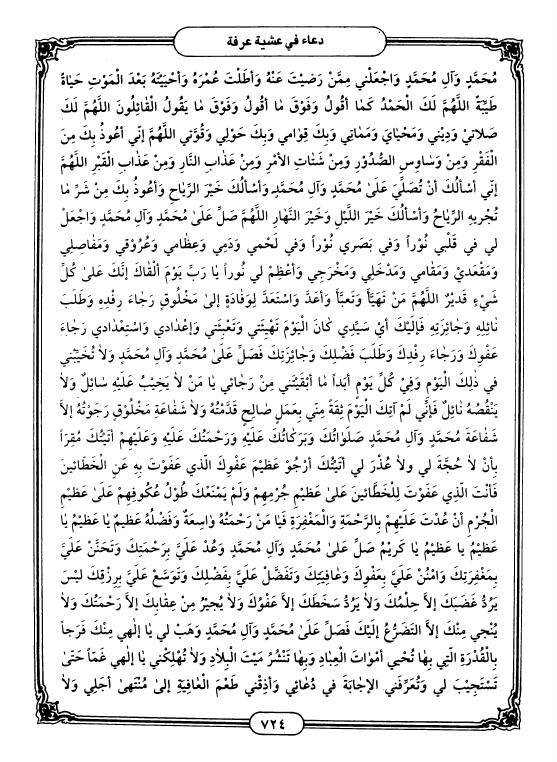 دعاء في عشية عرفة
مُحَمَّدٍ وَآلِ مُحَمَّدٍ وَاجْعَلْني مِمَّنْ رَضيْتَ عَنْهُ وَأَطَلْتَ عُمْرَهُ وَأَحْيَيْتَهُ بَعْدَ الْمَوْتِ حَيَاةً
طَيِّبَةً اللَّهُمَّ لَكَ الْحَمْدُ كَمَا أَقُولُ وَفَوْقَ مَا أَقُولُ وَفَوْقَ مَا يَقُولُ الْقَائِلُونَ اللَّهُمَّ لَكَ
صَلاتيْ وَدِيْني وَمَحْيَايَ وَمَمَاتي وَبِكَ قِوَامي وَبِكَ حَوْلي وَقُوَّتي اللَّهُمَّ إنّي أَعُوذُ بِكَ مِنَ
الْفَقْرِ وَمِنْ وَسَاوِسِ الصُّدُوْرِ وَمِنْ شَتَاتِ الأَمْرِ وَمِنْ عَذَابِ النَّارِ وَمِنْ عَذَابِ الْقَبْرِ اللَّهُمَّ
إنّي أَسْأَلُكَ أَنْ تُصَلِّيَ عَلىٰ مُحَمَّدٍ وَآلِ مُحَمَّدٍ وَأَسْأَلُكَ خَيْرَ الرِّيَاحِ وَأَعُوذُ بِكَ مِنْ شَرِّ مَا
تُجْرِيهِ الرِّيَاحُ وَأَسْأَلُكَ خَيْرَ اللَّيْلِ وَخَيْرَ النَّهَارِ اللَّهُمَّ صَلِّ عَلىٰ مُحَمَّدٍ وَآلِ مُحَمَّدٍ وَاجْعَلْ
لي في قَلْبي نُوْراً وَفي بَصَري نُوْراً وَفي لَحْمي وَدَمي وَعِظَامي وَعُرُوْقي وَمَفَاصِلي
وَمَقْعَديْ وَمَقَامي وَمَدْخَلي وَمَخْرَجي وَأَعْظِمْ لي نُوراً يَا رَبِّ يَوْمَ أَلْقَاكَ إنَّكَ عَلىٰ كُلِّ
شَيْءٍ قَدِيْرٌ اللَّهُمَّ مَنْ تَهَيَّأَ وَتَعَبَّأَ وَأَعَدَّ وَاسْتَعَدَّ لِوِفَادَةٍ إلىٰ مَخْلُوقٍ رَجَاءَ رِفْدِهِ وَطَلَبَ
نَائِلِهِ وَجَائِزَتِهِ فَإلَيْكَ أيْ سَيِّدي كَانَ الْيَوْمَ تَهْيِئَتي وَتَعْبِئَتي وَإعْدَادي وَاسْتِعْدَادي رَجَاءَ
عَفْوِكَ وَرَجَاءَ رِفْدِكَ وَطَلَبَ فَضْلِكَ وَجَائِزَتِكَ فَصَلِّ عَلىٰ مُحَمَّدٍ وَآلِ مُحَمَّدٍ وَلاَ تُخَيِّبْني
في ذٰلِكَ الْيَوْمِ وَفي كُلِّ يَوْمٍ أَبَداً مَا أَبْقَيْتَني مِنْ رَجَائي يَا مَنْ لاَ يَخِيْبُ عَلَيْهِ سَائِلٌ وَلاَ
يَنْقُصُهُ نَائِلٌ فَإنّي لَمْ آتِكَ الْيَوْمَ ثِقَةً مِنّي بِعَمَلٍ صَالِحٍ قَدَّمْتُهُ وَلاَ شَفَاعَةِ مَخْلُوْقٍ رَجَوْتُهُ إلاَّ
شَفَاعَةَ مُحَمَّدٍ وَآلِ مُحَمَّدٍ صَلَوَاتُكَ وَبَرَكَاتُكَ عَلَيْهِ وَرَحْمَتُكَ عَلَيْهِ وَعَلَيْهِمْ أَتَيْتُكَ مُقِرّاً
بِأَنْ لاَ حُجَّةَ لي وَلاَ عُذْرَ لي أَتَيْتُكَ أَرْجُوْ عَظِيْمَ عَفْوِكَ الَّذي عَفَوْتَ بِهِ عَنِ الْخَطَائينَ
فَأَنْتَ الَّذي عَفَوْتَ لِلْخَطَّائينَ عَلىٰ عَظِيْمِ جُرْمِهِمْ وَلَمْ يَمْنَعْكَ طُوْلُ عُكُوفِهِمْ عَلىٰ عَظِيْمِ
الْجُرْمِ أَنْ عُدْتَ عَلَيْهِمْ بِالرَّحْمَةِ وَالْمَغْفِرَةِ فَيَا مَنْ رَحْمَتُهُ وَاسِعَةٌ وَفَضْلُهُ عَظيمٌ يَا عَظيْمُ يَا
عَظيْمُ يا عَظيْمُ يَا كَريْمُ صَلِّ عَلىٰ مُحَمَّدٍ وَآلِ مُحَمَّدٍ وَعُدْ عَلَيَّ بِرَحْمَتِكَ وَتَحَنَّنْ عَلَيَّ
بِمَغْفِرَتِكَ وَامْنُنْ عَلَيَّ بِعَفْوِكَ وَعَافِيَتِكَ وَتَفَضَّلْ عَلَيَّ بِفَضْلِكَ وَتَوَسَّعْ عَلَيَّ بِرِزْقِكَ لَيْسَ
يَرُدُّ غَضَبَكَ إلاَّ حِلْمُكَ وَلاَ يَرُدُّ سَخَطَكَ إلاَّ عَفْوُكَ وَلاَ يُجِيْرُ مِنْ عِقَابِكَ إلاَّ رَحْمَتُكَ وَلاَ
يُنْجي مِنْكَ إلاَّ التَضَرُّعُ إلَيْكَ فَصَلِّ عَلىٰ مُحَمَّدٍ وَآلِ مُحَمَّدٍ وَهَبْ لي يَا إلٰهي مِنْكَ فَرَجاً
بِالْقُدْرَةِ الَّتي بِهَا تُحْيي أَمْوَاتَ الْعِبَادِ وَبِهَا تَنْشُرُ مَيْتَ الْبِلاَدِ وَلاَ تُهْلِكْني يَا إلٰهي غَمّاً حَتىٰ
تَسْتَجِيْبَ لي وَتُعَرِّفَني الإجَابَةَ في دُعَائي وَأَذِقْني طَعْمَ الْعَافِيَةِ إلىٰ مُنْتَهىٰ أَجَلي وَلاَ
٧٢٤